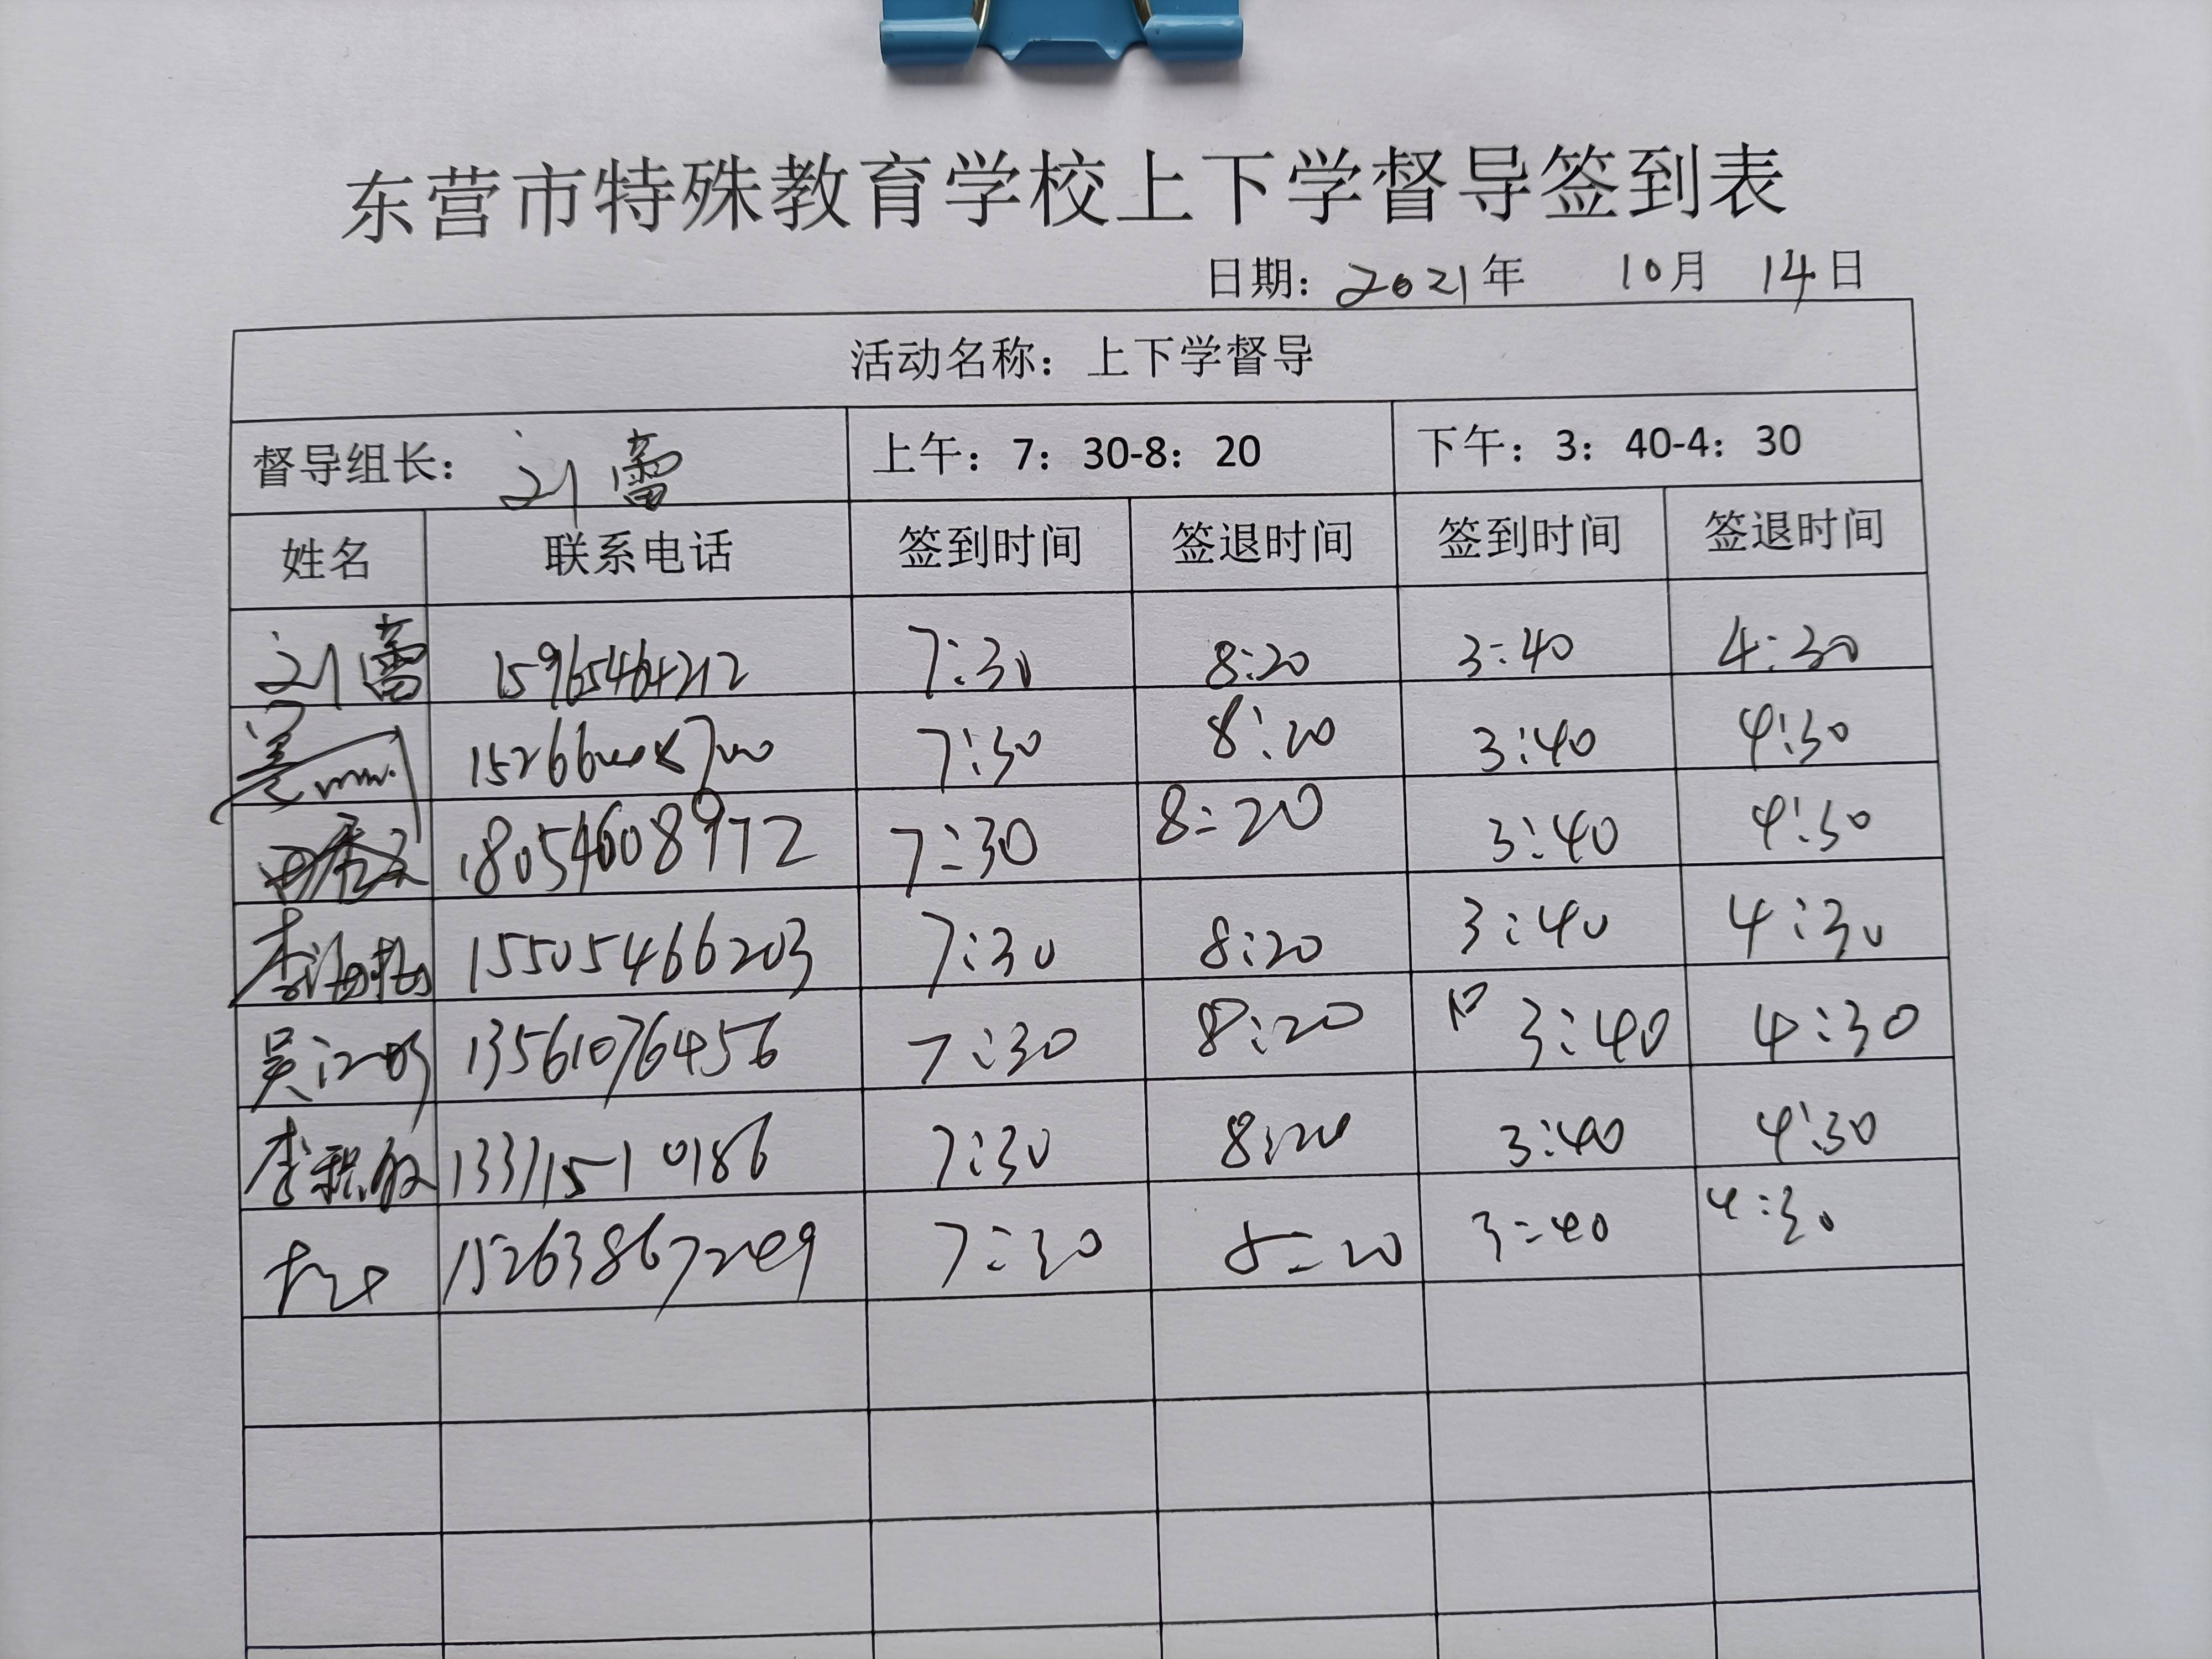 东营市特殊教育学校上下学督导签到表
日期：2021年 10月 14日
活动名称：上下学督导
督导组长：刘蕾 上午：7：30-8：20 下午：3：40-4：30
姓名 联系电话 签到时间 签退时间 签到时间 签退时间
刘蕾 15965464212 7:30 8:20 3:40 4:30
7:30 8:20 3:40 4:30
18054608972 7:30 8:20 3:40 4:30
李海艳 15505466203 7:30 8:20 3:40 4:30
吴江明 13561076456 7:30 8:20 3:40 4:30
李积敏 13371510186 7:30 8:20 3:40 4:30
15263867249 7:30 8:20 3:40 4:30